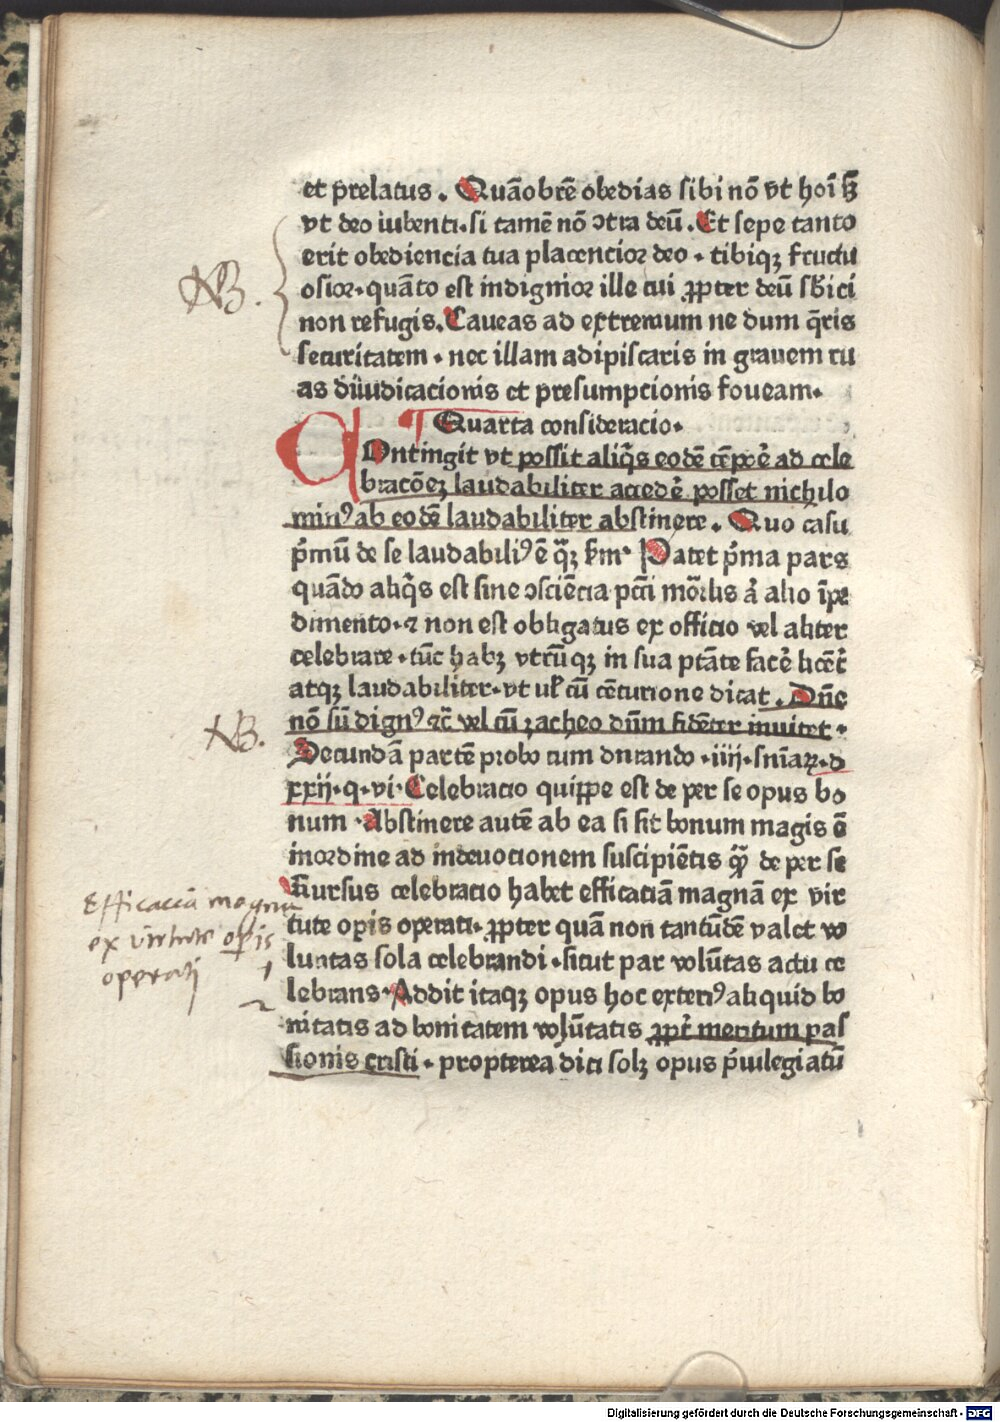 et p̄relatus. Quāobrē obedias sibi nō vt hoī sꝫ
vt deo iubenti. si tamē nō ɔtra deū. Et sepe tanto
erit obediencia tua placencior deo. tibiqꝫ fructu
osior. quāto est indignior ille cui ꝓpter deū sb̄ici
non refugis. Caueas ad extremum ne dum q̄ris
securitatem. nec illam adipiscaris in grauem ru
as diiudicacionis et presumpcionis foueam.
Quarta consideracio.
COntingit vt possit aliq̄s eodē tēpoꝛe ad cele
bracōeꝫ laudabiliter accedē posset nichilo
minꝰ ab eodē laudabiliter abstinere. Quo casu
p̄mū de se laudabiliꝰ ē q̄ꝫ scḋm. Patet p̄ma pars
quādo aliq̄s est sine ɔsciēcia pctī mōrtalis ⁊ alio īpe
dimento. ⁊ non est obligatus ex officio vel aliter
celebrare. tūc habꝫ vtrūqꝫ in sua ptāte facē licet
atqꝫ laudabiliter. vt vl cū cēturione dicat. Dn̄e
nō sū dignꝰ ⁊c̄ vel cū zacheo dn̄m fidēter inuitet.
Secundā partē probo cum durando. iiij. sn̄iaꝝ. d
xxij. q. vi. Celebracio quippe est de per se opus bo
num. Abstinere autē ab ea si sit bonum magis ē
inordine ad indeuocionem suscipiētis q̄ꝫ de per se
Rursus celebracio habet efficaciā magnā ex vir
tute opis operati. ꝓpter quā non tantūdē valet vo
luntas sola celebrandi. sicut par volūtas actu ce
lebrans. Addit itaqꝫ opus hoc exteriꝰ aliquid bo
nitatis ad bonitatem volūtatis ꝓpt̄ meritum pas
sionis cristi. propterea dici solꝫ opus p̄uilegiatū
NB.
NB.
Efficaciā magnā
ex virtute opis
operatj
Digitalisierung gefördert durch die Deutsche Forschungsgemeinschaft - DFG